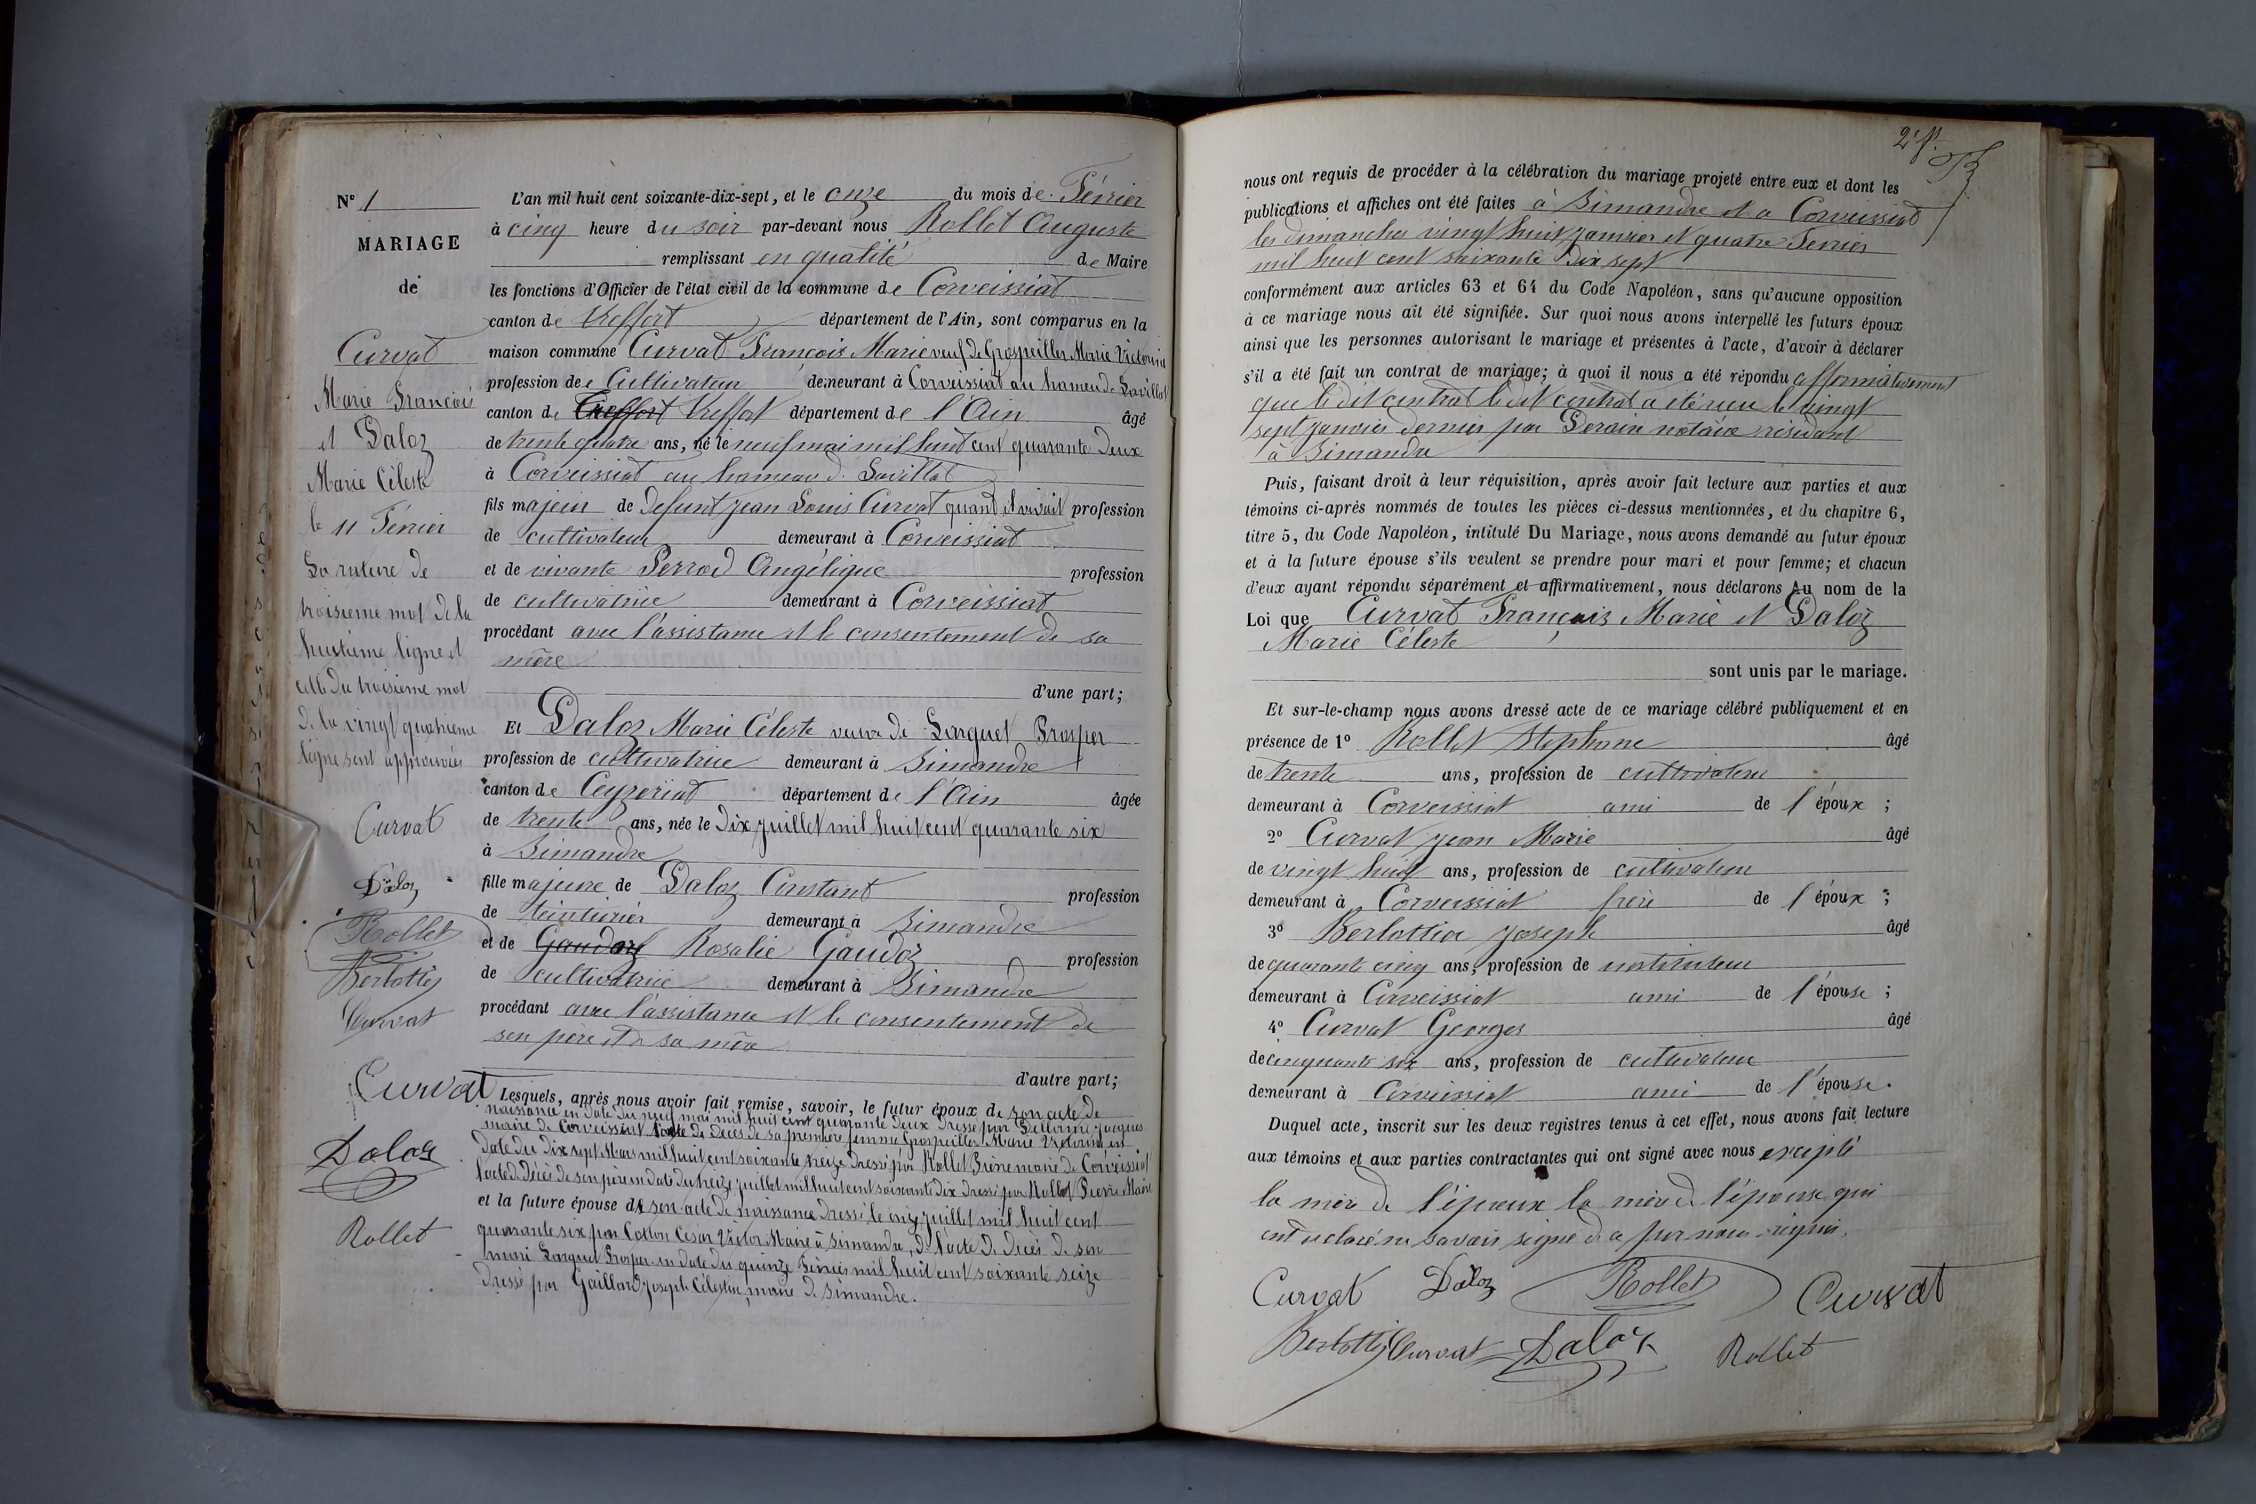 N° 1
MARIAGE
de
Curvat
Marie François
et Daloz
Marie Céleste
le 11 Février
La rature de
troisième mot de la
huitième ligne et
celle du troisième mot
de la vingt quatrième
ligne sont approuvées
Curvat
Daloz
Rollet
Bertottij
Curvat
Curvat
Daloz
Rollet
L'an mil huit cent soixante-dix-sept, et le onze du mois de Février
à cinq heure du soir par-devant nous Rollet Auguste
remplissant en qualité de Maire
les fonctions d'Officier de l'état civil de la commune de Corveissiat
canton de Treffort département de l'Ain, sont comparus en la
maison commune Curvat François Marie veuf de Grospeiller Marie Victorine
profession de Cultivateur demeurant à Corveissiat au hameau de Savillat
canton de Treffort Treffort département de l'Ain âgé
de trente quatre ans, né le neuf mai mil huit cent quarante deux
à Corveissiat au hameau de Savillat
fils majeur de defunt Jean Louis Curvat quand il vivait profession
de cultivateur demeurant à Corveissiat
et de vivante Perrod Angélique profession
de cultivatrice demeurant à Corveissiat
procédant avec l'assistance et le consentement de sa
mère
d'une part;
Et Daloz Marie Céleste veuve de Sorguet Prosper
profession de cultivatrice demeurant à Simandre
canton de Ceyzeriat département de l'Ain âgée
de trente ans, née le dix juillet mil huit cent quarante six
à Simandre
fille majeure de Daloz Constant profession
de teinturier demeurant à Simandre
et de Rosalie Gaudoz profession
de cultivatrice demeurant à Simandre
procédant avec l'assistance et le consentement de
son père et de sa mère
d'autre part;
Lesquels, après nous avoir fait remise, savoir, le futur époux de son acte de
naissance en date du neuf mai mil huit cent quarante deux dressé par Jacques
maire de Corveissiat l'acte de décès de sa première femme Grospeiller Marie Victorine en
date du dix sept Mars mil huit cent soixante treize dressé par Rollet Pierre maire de Corveissiat
l'acte de décès de son père en date du treize juillet mil huit cent soixante dix dressé par Rollet Pierre Maire
et la future épouse de son acte de naissance dressé le onze juillet mil huit cent
quarante six par Cotton César Victor Maire à Simandre, de l'acte de décès de son
mari Sorguet Prosper en date du quinze Février mil huit cent soixante seize
dressé par Gaillard Joseph Célestin, maire de Simandre.
2e f.
nous ont requis de procéder à la célébration du mariage projeté entre eux et dont les
publications et affiches ont été faites à Simandre et a Corveissiat
les dimanches vingt huit janvier et quatre Fevrier
mil huit cent soixante dix sept
conformément aux articles 63 et 64 du Code Napoléon, sans qu'aucune opposition
à ce mariage nous ait été signifiée. Sur quoi nous avons interpellé les futurs époux
ainsi que les personnes autorisant le mariage et présentes à l'acte, d'avoir à déclarer
s'il a été fait un contrat de mariage; à quoi il nous a été répondu affirmativement
que le dit contrat le dit contrat a été reçu le vingt
sept janvier dernier par Derain notaire résidant
à Simandre
Puis, faisant droit à leur réquisition, après avoir fait lecture aux parties et aux
témoins ci-après nommés de toutes les pièces ci-dessus mentionnées, et du chapitre 6,
titre 5, du Code Napoléon, intitulé Du Mariage, nous avons demandé au futur époux
et à la future épouse s'ils veulent se prendre pour mari et pour femme; et chacun
d'eux ayant répondu séparément et affirmativement, nous déclarons Au nom de la
Loi que Curvat François Marie et Daloz
Marie Céleste
sont unis par le mariage.
Et sur-le-champ nous avons dressé acte de ce mariage célébré publiquement et en
présence de 1° Rollet Stephane âgé
de trente ans, profession de cultivateur
demeurant à Corveissiat ami de l'époux ;
2° Curvat Jean Marie âgé
de vingt huit ans, profession de cultivateur
demeurant à Corveissiat frère de l'époux ;
3° Joseph âgé
de quarante cinq ans, profession de instituteur
demeurant à Corveissiat ami de l'épouse ;
4° Curvat Georges âgé
de cinquante six ans, profession de cultivateur
demeurant à Corveissiat ami de l'épouse.
Duquel acte, inscrit sur les deux registres tenus à cet effet, nous avons fait lecture
aux témoins et aux parties contractantes qui ont signé avec nous excepté
la mère de l'époux la mère de l'épouse qui
ont déclaré ne savoir signé de ce par nous requis.
Curvat Daloz Rollet Curvat
Bertottij Curvat Daloz Rollet